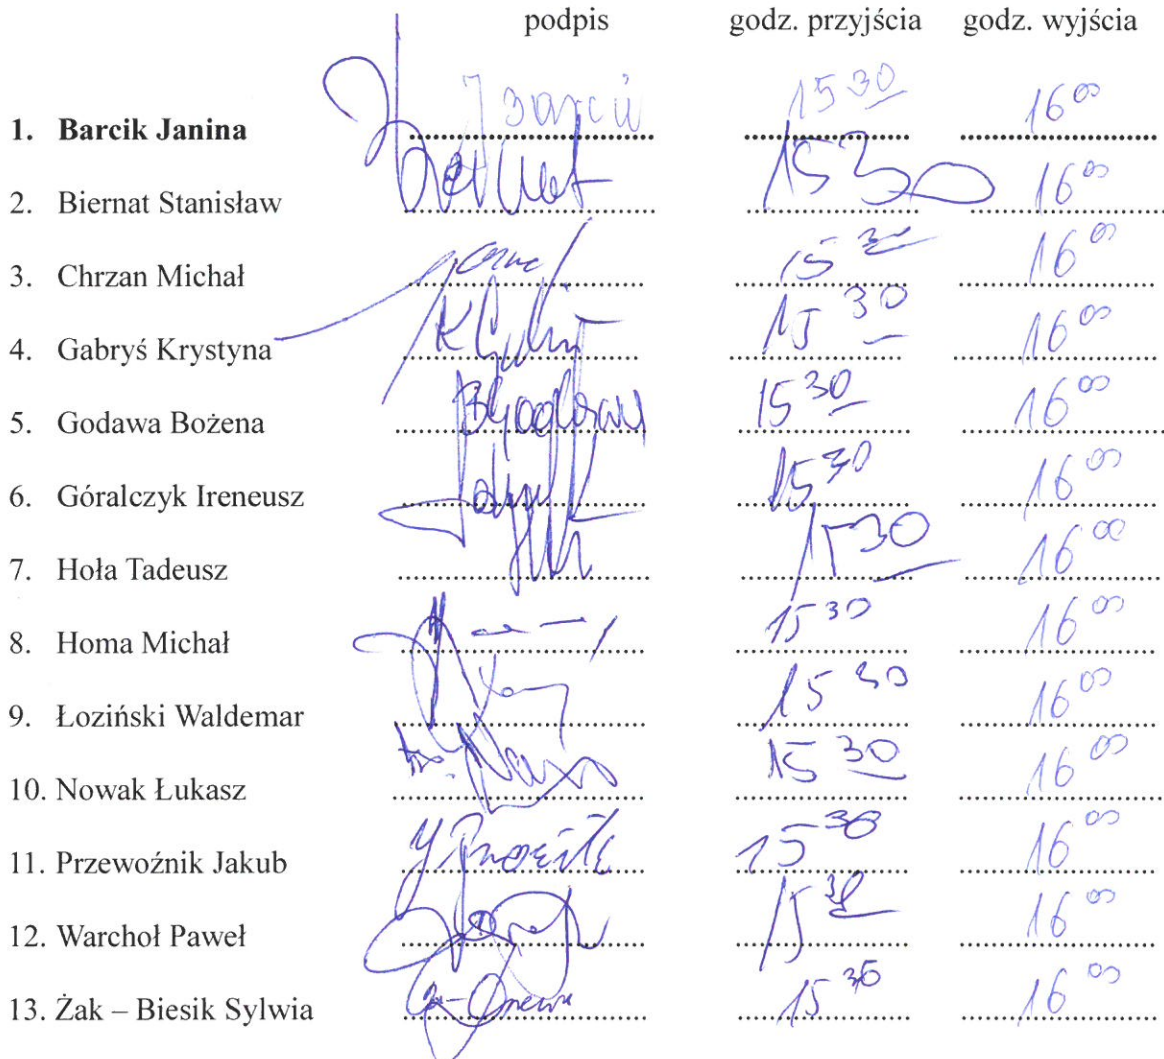 podpis godz. przyjścia godz. wyjścia
1. Barcik Janina 15 30 16 00
2. Biernat Stanisław 15 30 16 00
3. Chrzan Michał 15 30 16 00
4. Gabryś Krystyna 15 30 16 00
5. Godawa Bożena 15 30 16 00
6. Góralczyk Ireneusz 15 30 16 00
7. Hoła Tadeusz 15 30 16 00
8. Homa Michał 15 30 16 00
9. Łoziński Waldemar 15 30 16 00
10. Nowak Łukasz 15 30 16 00
11. Przewoźnik Jakub 15 30 16 00
12. Warchoł Paweł 15 30 16 00
13. Żak – Biesik Sylwia 15 30 16 00